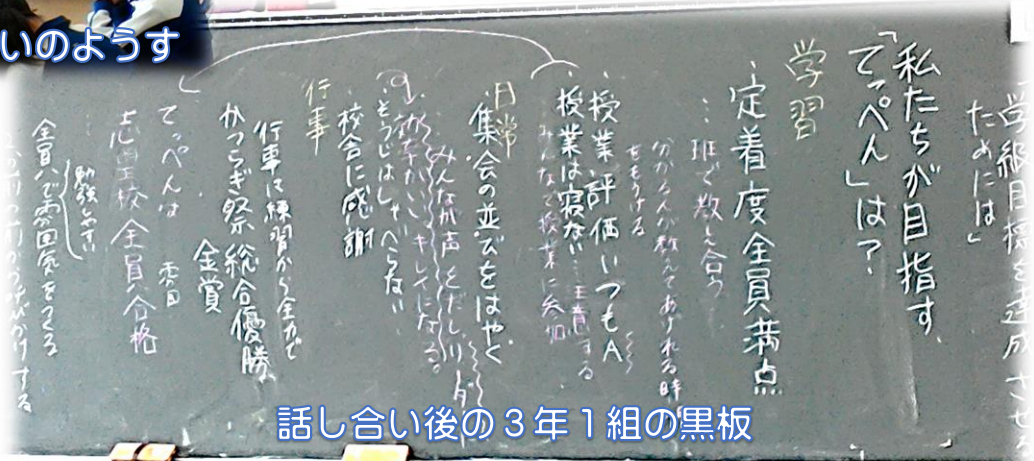 学級目標を達成させる
ためには」
私たちが目指す、
「てっぺん」は？
学習
・定着度全員満点
…班で教え合う
分かる人が教えてあげられる時
をもうける
・授業評価いつもA
・授業は寝ない…注意する
みんなで授業に参加
日常
・集会の並びをはやく
みんなが声をだし
キレイになる。
・そうじはしゃべらない
・校舎に感謝
行事
行事は練習から全力で
かつらぎ祭総合優勝
金賞
てっぺんは
志望校全員合格
勉強しやすい
全員で雰囲気をつくる
いのようす
話し合い後の３年１組の黒板